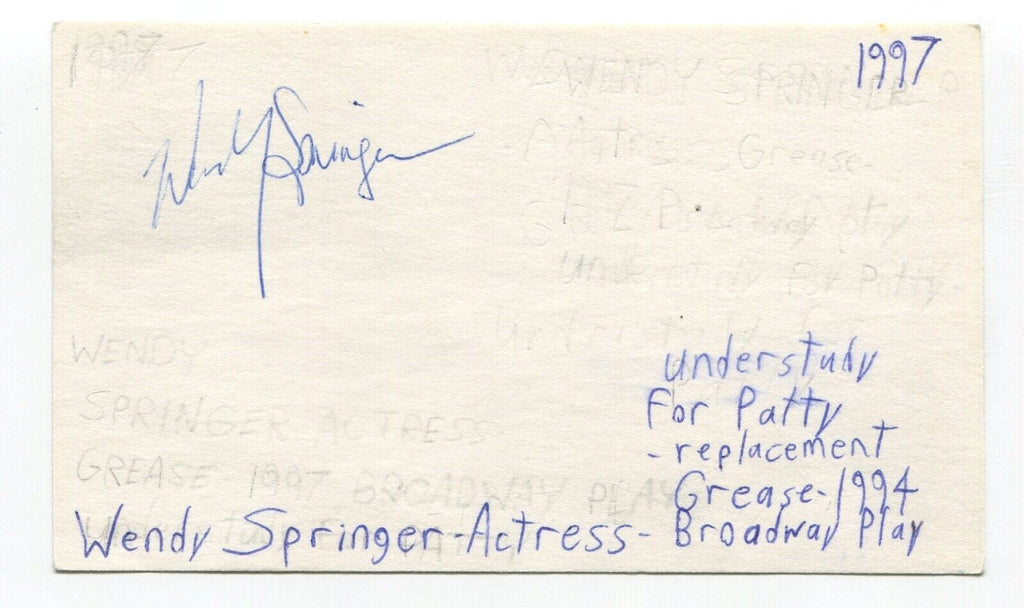 1997
1997
WENDY SPRINGER
Wendy Springer
Actress Grease-
1997 Broadway Play
understudy For Patty-
understudy for
understudy
For Patty
WENDY
-replacement
SPRINGER ACTRESS
Grease-1994
GREASE 1997 BROADWAY PLAY
Wendy Springer-Actress-Broadway Play